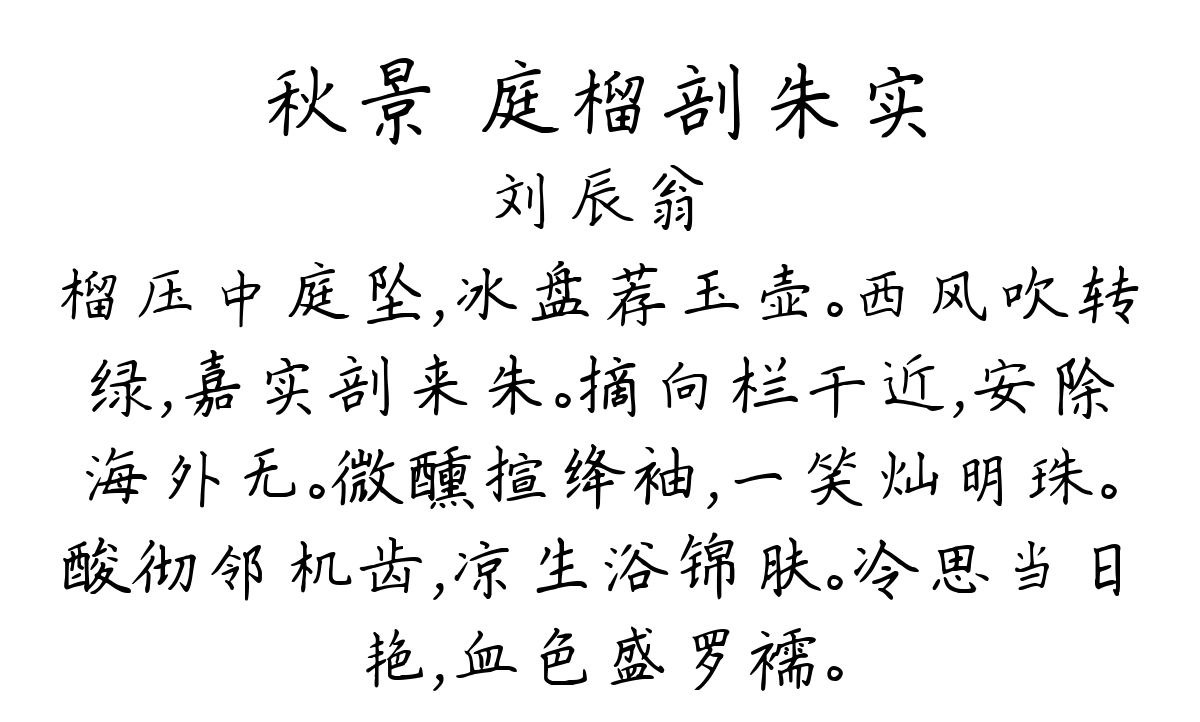 秋景 庭榴剖朱实
刘辰翁
榴压中庭坠,冰盘荐玉壶。西风吹转
绿,嘉实剖来朱。摘向栏干近,安除
海外无。微醺揎绛袖,一笑灿明珠。
酸彻邻机齿,凉生浴锦肤。冷思当日
艳,血色盛罗襦。